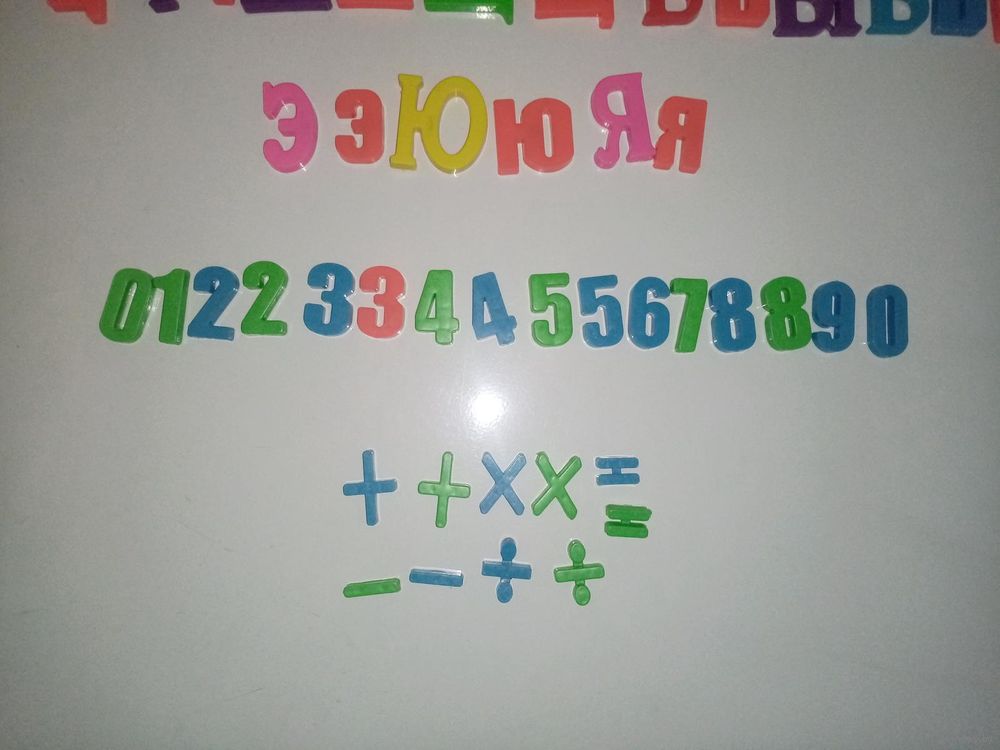 Э э Ю ю Я я
0 1 2 2 3 3 4 4 5 5 6 7 8 8 9 0
+ + × × =
=
− − ÷ ÷